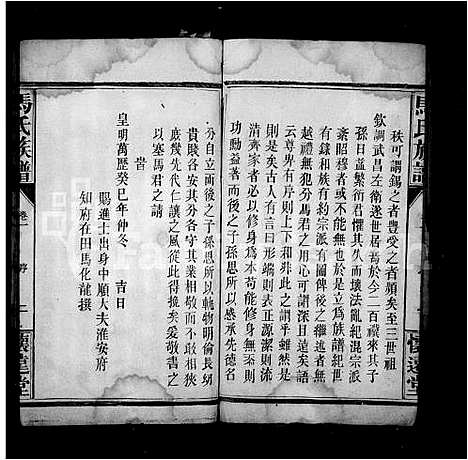 秩可謂錫之者豐受之者顧矣至三世祖
欽調武昌左衛遂世居焉於今二百禩來其子
孫日益繁衍君懼其久而壞法亂紀混宗派
紊昭穆者或不能無也於是立爲族譜紀世
有錄和族有約宗派有圖俾後之繼述者無
越禮無犯分馬君之用心可謂深且遠矣語
云尊卑有序而上下和非此之謂乎雖然又
則是矣古人有言曰形端則表正源潔則流
清齊家者必以修身爲本苟能修身無忝則
功勳益著而後之子孫思所以感承先德名
分自立而後之子孫思所以軌物明倫長幼
貴賤各安其分各守其業相敬而不敢相狹
庶幾先代仁讓之風從此得挽矣爰敬書之
以塞馬君之請
皆
皇明萬歷癸巳年仲冬 吉日
賜進士出身中順大夫淮安府
知府在田馬化龍撰
馬氏族譜
卷一
序
懷達堂